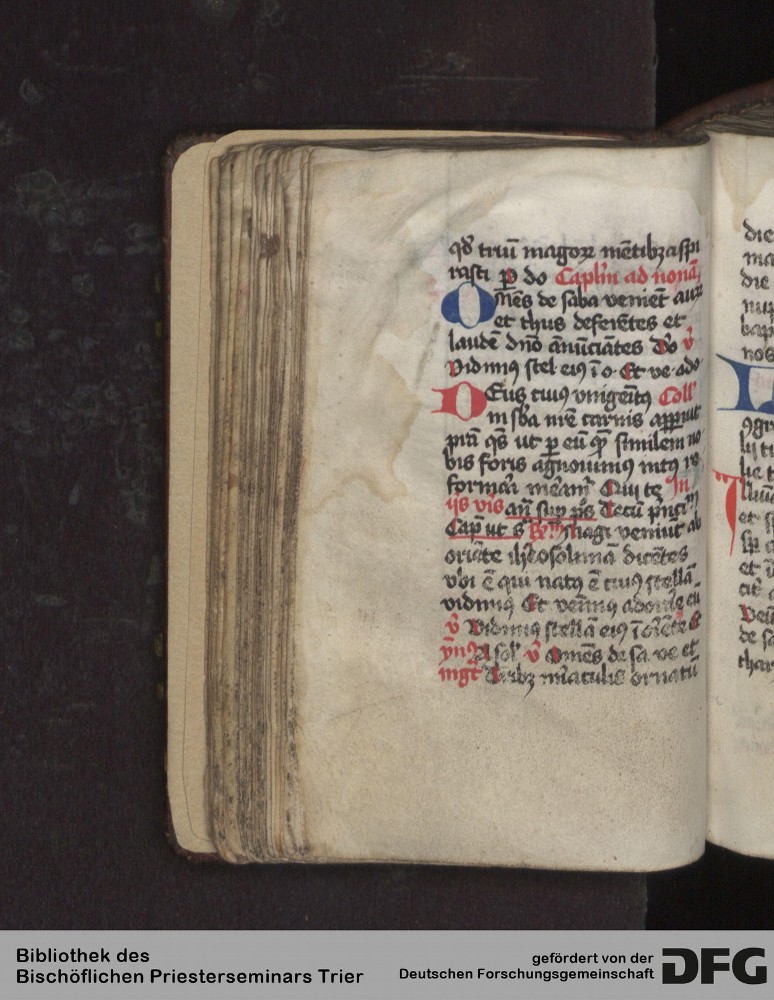 qd' triū magoꝝ mētibꝫ aspi
rasti ꝑ do Caplm ad nonā
Omēs de saba veniēt auꝝ
et thus deferētes et
laudē dno ānūciātes Do ꝟ
Vidimꝰ stel eiꝰ ī o Et ve ado
DEus cuiꝰ vnigenitꝰ Coll'
in sba nr̄e carnis apparuit
p̄ta qs̄ ut ꝑ eū quē similem no
bis foris agnouimꝰ intꝰ re
formari meam̄ Qui te In
ijs vis an̄ sup ps̄ Tecū prnci
Cap ut s R Magi veniūt ab
oriēte iherosolimā dicētes
vbi ē qui natꝰ ē cuiꝰ stellā
vidimꝰ Et venimꝰ adorare eū
ꝟ Vidimꝰ stellā eiꝰ ī oriēte Et
ymꝰ A sol' ꝟ Omēs de sa ve et
mgt Tribꝫ miraculis ornatū
die
ma
die
nup
bap
nos
L
ꝯgr
lie t
et
sp
et
Veni
de sa
thar
Bibliothek des
Bischöflichen Priesterseminars Trier
gefördert von der
Deutschen Forschungsgemeinschaft DFG